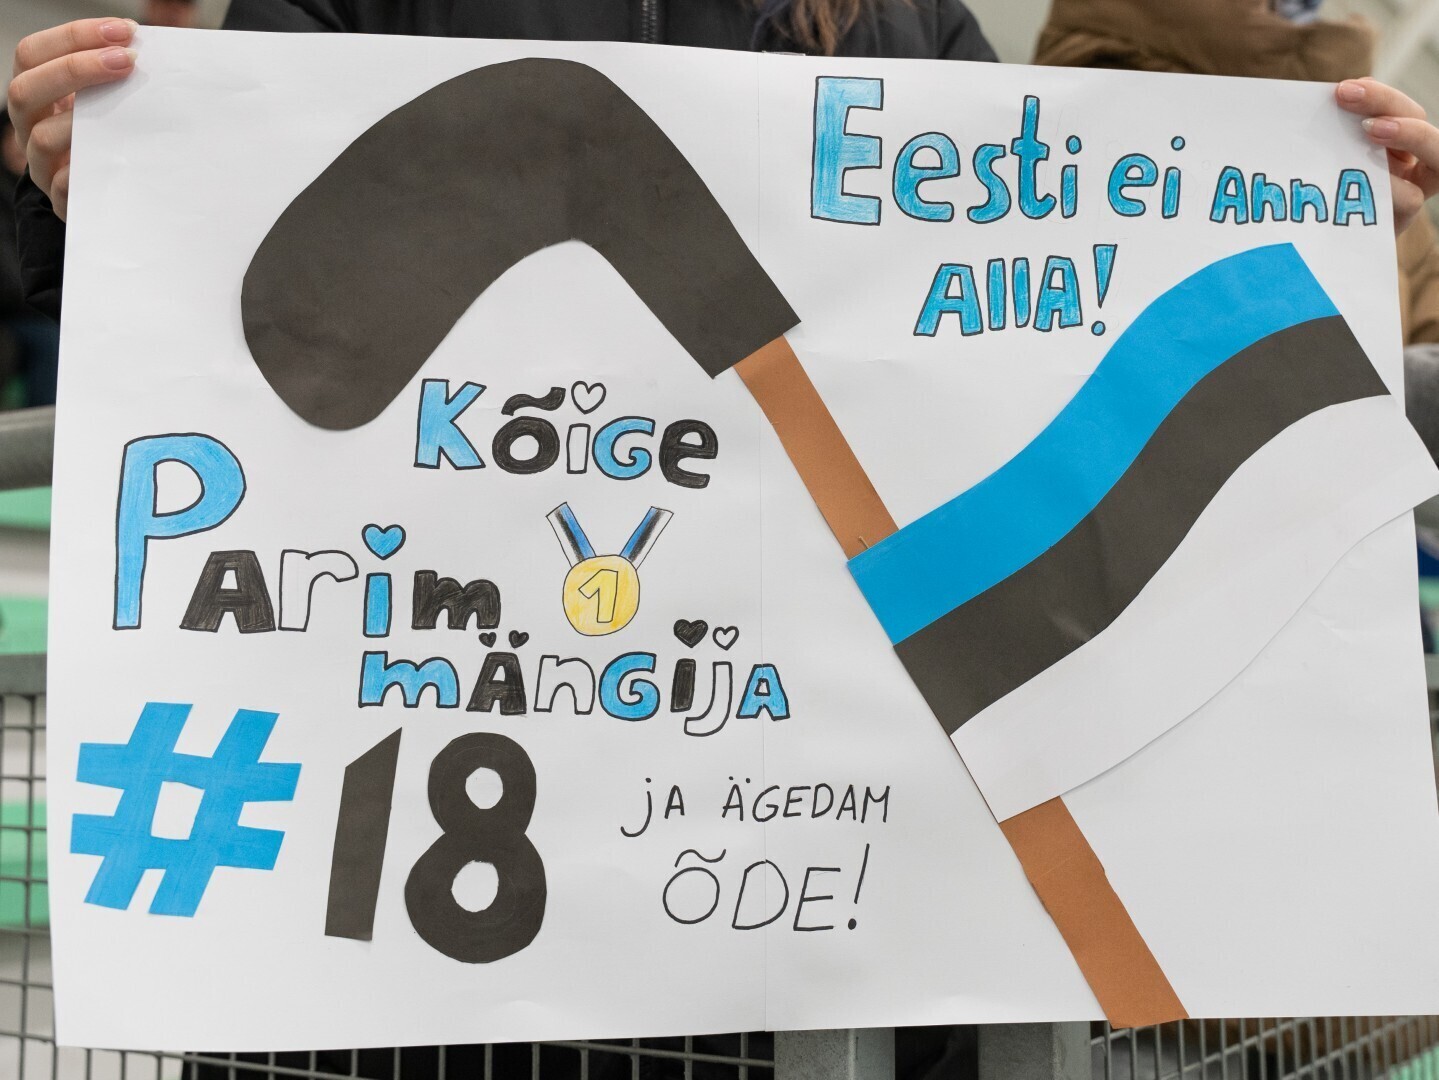 Eesti ei AnnA
AllA!
Kõige
PArim
1
mÄnGijA
#18
jA ÄGEDAM
ÕDE!